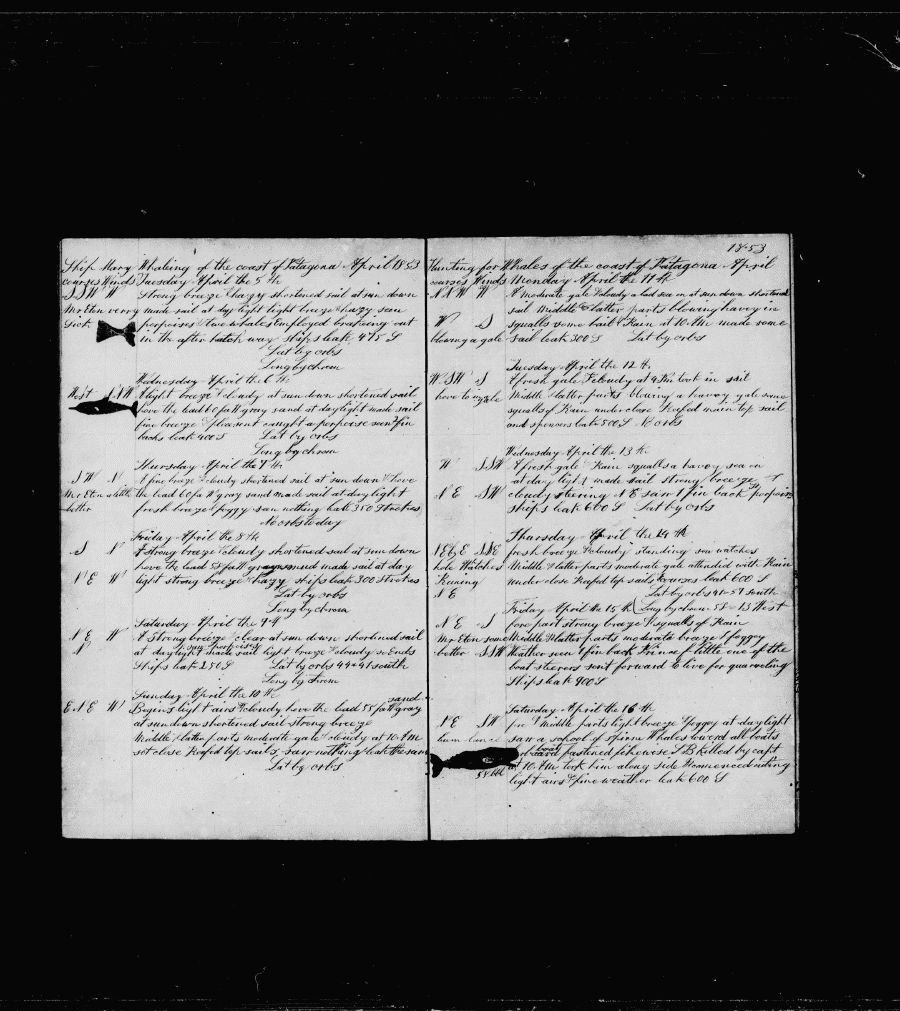 Ship Mary Whaleing of the coast of Patagona April 1853
courses Winds Tuesday April the 5 th
S S W W Strong breeze & hazy shortened sail at sun down
Mr Eten very made sail at day light light breeze & hazy saw
Sick porpoises & two whales Employed breaking out
in the after hatch way ships leak 475 S
Lat by orbs
Long by chrom
Wednesday April the 6 th
West S S W A light breeze & cloudy at sun down shortened sail
hove the lead 60 fa W gray sand at daylight made sail
fine breeze & pleasent caught a porpoise seen fin
backs leak 400 S Lat by orbs
Long by chrom
Thursday April the 7 th
S W N A fine breeze & cloudy shortened sail at sun down & hove
Mr Eten a little the lead 60 fa W gray sand made sail at day light
better fresh breeze & foggy saw nothing leak 350 Strokes
No orbs today
Friday April the 8 th
S N A strong breeze & cloudy shortened sail at sun down
hove the lead 58 fa W gray sand made sail at day
N E W light strong breeze & hazy ships leak 300 Strokes
Lat by orbs
Long by chrom
Saturday April the 9 th
N E W A Strong breeze & clear at sun down shortened sail
N saw porpoises
at daylight made sail light breeze & cloudy so Ends
Ships leak 250 S Lat by orbs 44=41 south
Long by chrom
Sunday April the 10 th
sand
E N E W Begins light airs & cloudy hove the lead 55 fa W gray
at sun down shortened sail strong breeze
Middle & latter parts moderate gale & cloudy at 10 A m
set close Reefed top sails saw nothing leak the same
Lat by orbs
1853
Hunting for Whales of the coast of Patagona April
courses Winds Monday April the 11 th
N N W W A moderate gale & cloudy a bad sea on at sun down shortened
sail Middle & latter parts blowing havey in
W S squalls some hail & Rain at 10 A m made some
blowing a gale sail leak 300 S Lat by orbs
Tuesday April the 12 th
W S W S A fresh gale & cloudy at 4 P m took in sail
hove to by gale Middle & latter parts blowing a heavey gale some
squalls of Rain under close Reefed main top sail
and spencers leak 500 S No orbs
Wednesday April the 13 th
W S S W A fresh gale & Rain squalls a havey sea on
at day light made sail strong breeze &
N E S W cloudy steering N E saw 1 fin back & porpoises
ships leak 600 S Lat by orbs
Thursday April the 14 th
N E by E S S E fresh breeze & cloudy standing sea watches
hole Watches Middle & latter parts moderate gale attended with Rain
Runing under close Reefed top sails & courses leak 600 S
N E Lat by orbs 41=57 south
Friday April the 15 th Long by chrom 55=13 West
N E S fore part strong breeze & squalls of Rain
Mr Eten some Middle & latter parts moderate breeze & foggy
better S S W Weather seen 1 fin back Prince & little one of the
boat steerers sent forward to live for quarreling
Ships leak 900 S
Saturday April the 16 th
N E S W fore & Middle parts light breeze & foggy at daylight
saw a school of Spirm Whales lowerd all boats
boat
and fastened likewise S B killed by capt
at 10 A m took him along side & commenced cuting
58 bbl light airs & fine weather leak 600 S